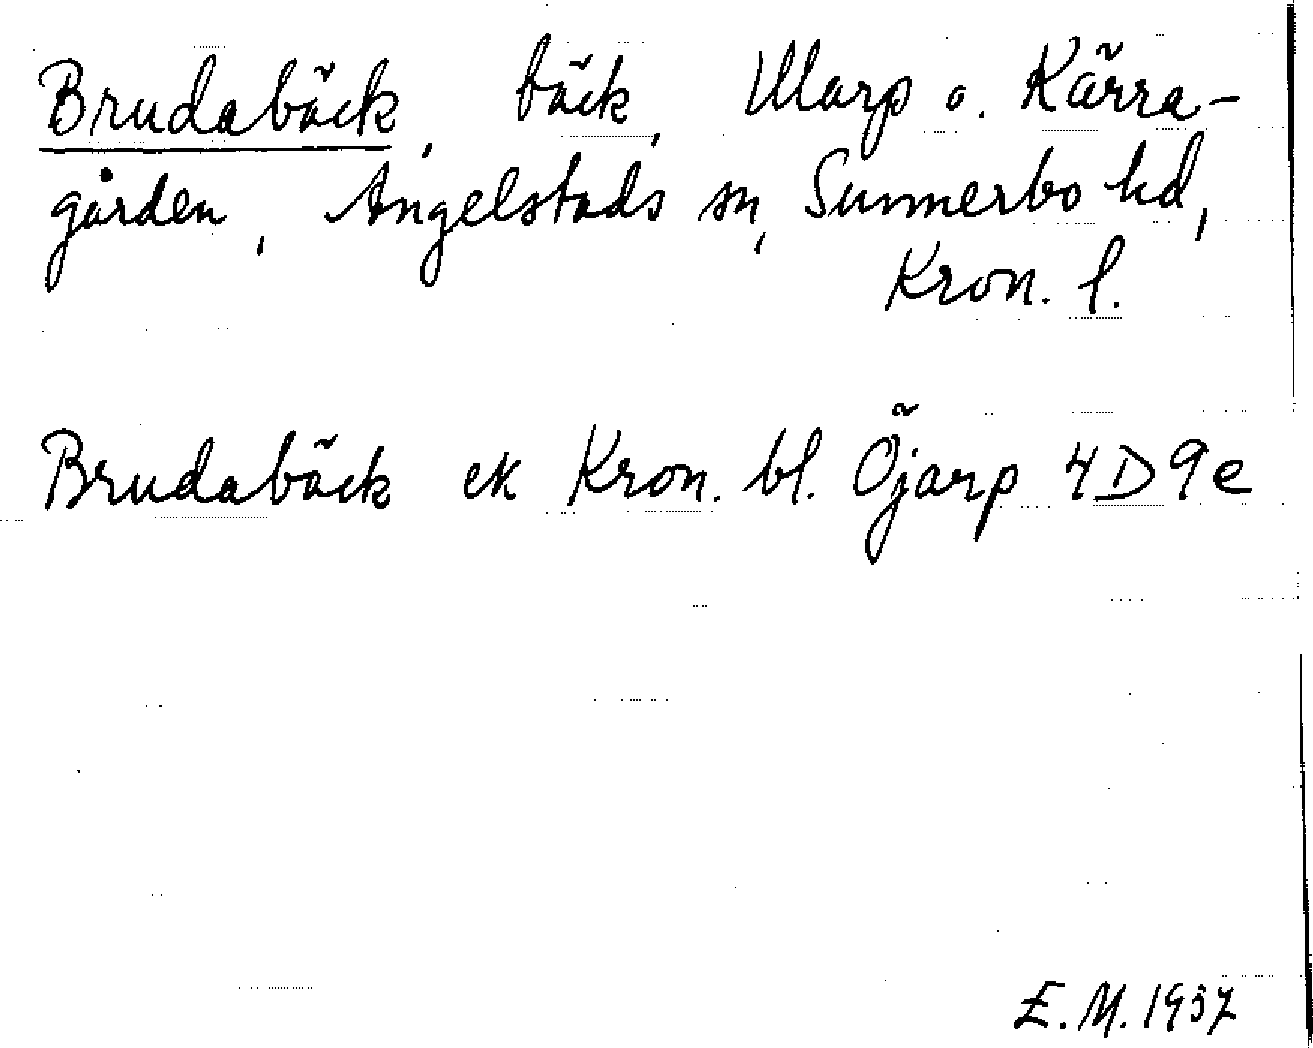 Brudabäck, bäck, Ularp o. Kärra-
gården, Angelstads sn, Sunnerbo hd,
Kron. l.
Brudabäck ek Kron. bl. Öjarp 4D9e
E.M. 1957